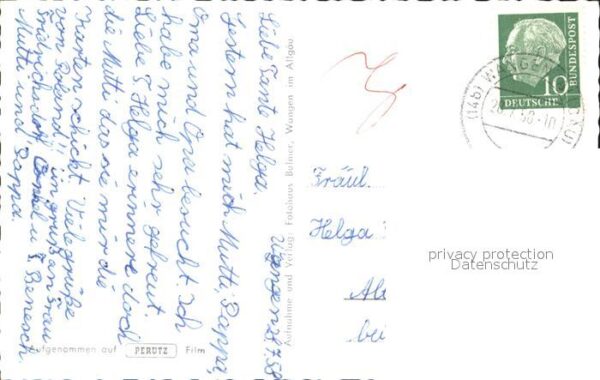 Wangen 24.7.58
Liebe Tante Helga.
Gestern hat mich Mutti, Pappa,
Oma und Opa besucht. Ich
habe mich sehr gefreut.
Liebe T. Helga erinnere doch
die Mutti das sie mir die
Karten schickt. Viele grüße
von Roland
ein gruß an Frau
Friedrichsdorf, Onkel u. T. Benesch.
Mutti und Pappa.
Aufgenommen auf PERUTZ Film
Aufnahme und Verlag: Fotohaus Balmer, Wangen im Allgäu
10
DEUTSCHE
BUNDESPOST
(14b) WANGEN
Fräul.
Helga
bei
privacy protection
Datenschutz